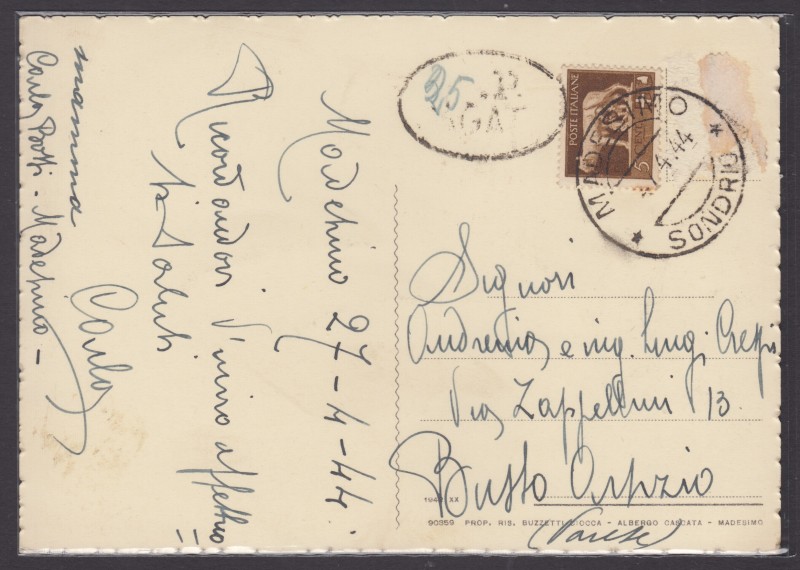 Madesimo 27-4-44.
Ricordandovi V'invio affettuo=
si saluti
Carla
mamma
Carla Patti - Madesimo -
25
POSTE ITALIANE
CENT. 5
MADESIMO
4.44
* SONDRIO *
Signori
Andreina e ing. Luigi Crespi
Via Zappellini 13
Busto Arsizio
(Varese)
XX
90359 PROP. RIS. BUZZETTI CIOCCA - ALBERGO CASCATA - MADESIMO